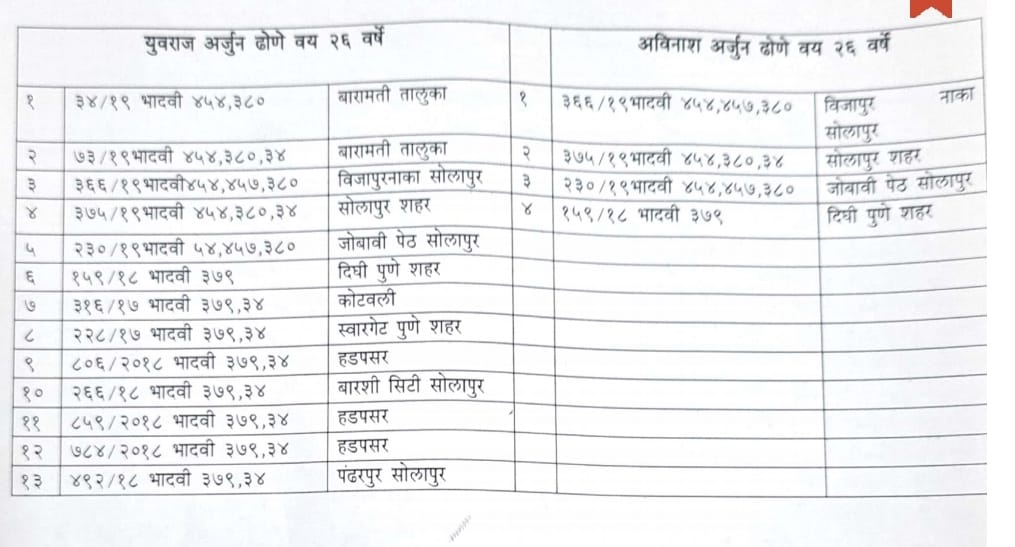 युवराज अर्जुन ढोणे वय २६ वर्षे अविनाश अर्जुन ढोणे वय २६ वर्षे
१ ३४/१९ भादवी ४५४,३८० बारामती तालुका १ ३६६/१९भादवी ४५४,४५७,३८० विजापुर नाका
सोलापुर
२ ७३/१९भादवी ४५४,३८०,३४ बारामती तालुका २ ३७५/१९भादवी ४५४,३८०,३४ सोलापुर शहर
३ ३६६/१९भादवी४५४,४५७,३८० विजापुरनाका सोलापुर ३ २३०/१९भादवी ४५४,४५७,३८० जोबावी पेठ सोलापुर
४ ३७५/१९भादवी ४५४,३८०,३४ सोलापुर शहर ४ १५९/१८ भादवी ३७९ दिघी पुणे शहर
५ २३०/१९भादवी ५४,४५७,३८० जोबावी पेठ सोलापुर
६ १५९/१८ भादवी ३७९ दिघी पुणे शहर
७ ३१६/१७ भादवी ३७९,३४ कोटवली
८ २२८/१७ भादवी ३७९,३४ स्वारगेट पुणे शहर
९ ८०६/२०१८ भादवी ३७९,३४ हडपसर
१० २६६/१८ भादवी ३७९,३४ बारशी सिटी सोलापुर
११ ८५९/२०१८ भादवी ३७९,३४ हडपसर
१२ ७८४/२०१८ भादवी ३७९,३४ हडपसर
१३ ४९२/१८ भादवी ३७९,३४ पंढरपुर सोलापुर